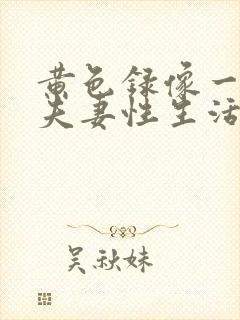 黄色录像一
夫妻性生活
吴秋妹